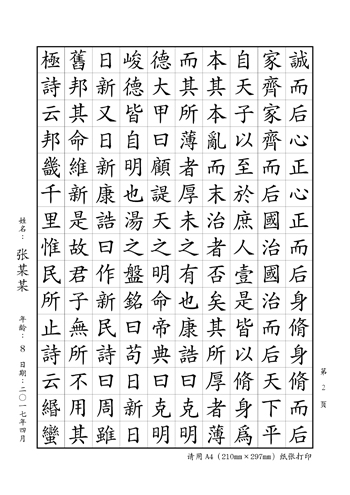 誠而后心正心正而后身脩身脩而后
家齊家齊而后國治國治而后天下平
自天子以至於庶人壹是皆以脩身爲
本其本亂而末治者否矣其所厚者薄
而其所薄者厚未之有也康誥曰克明
德大甲曰顧諟天之明命帝典曰克明
峻德皆自明也湯之盤銘曰苟日新日
日新又日新康誥曰作新民詩曰周雖
舊邦其命維新是故君子無所不用其
極詩云邦畿千里惟民所止詩云緡蠻
姓名：张某某 年龄：8 日期：二〇一七年四月
第 2 页
请用A4（210mm×297mm）纸张打印